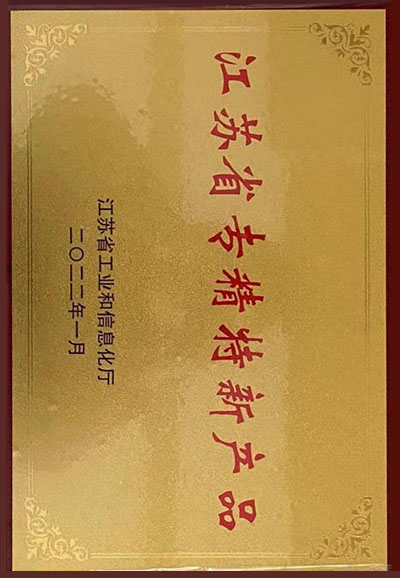 江苏省专精特新产品
江苏省工业和信息化厅
二〇二二年一月